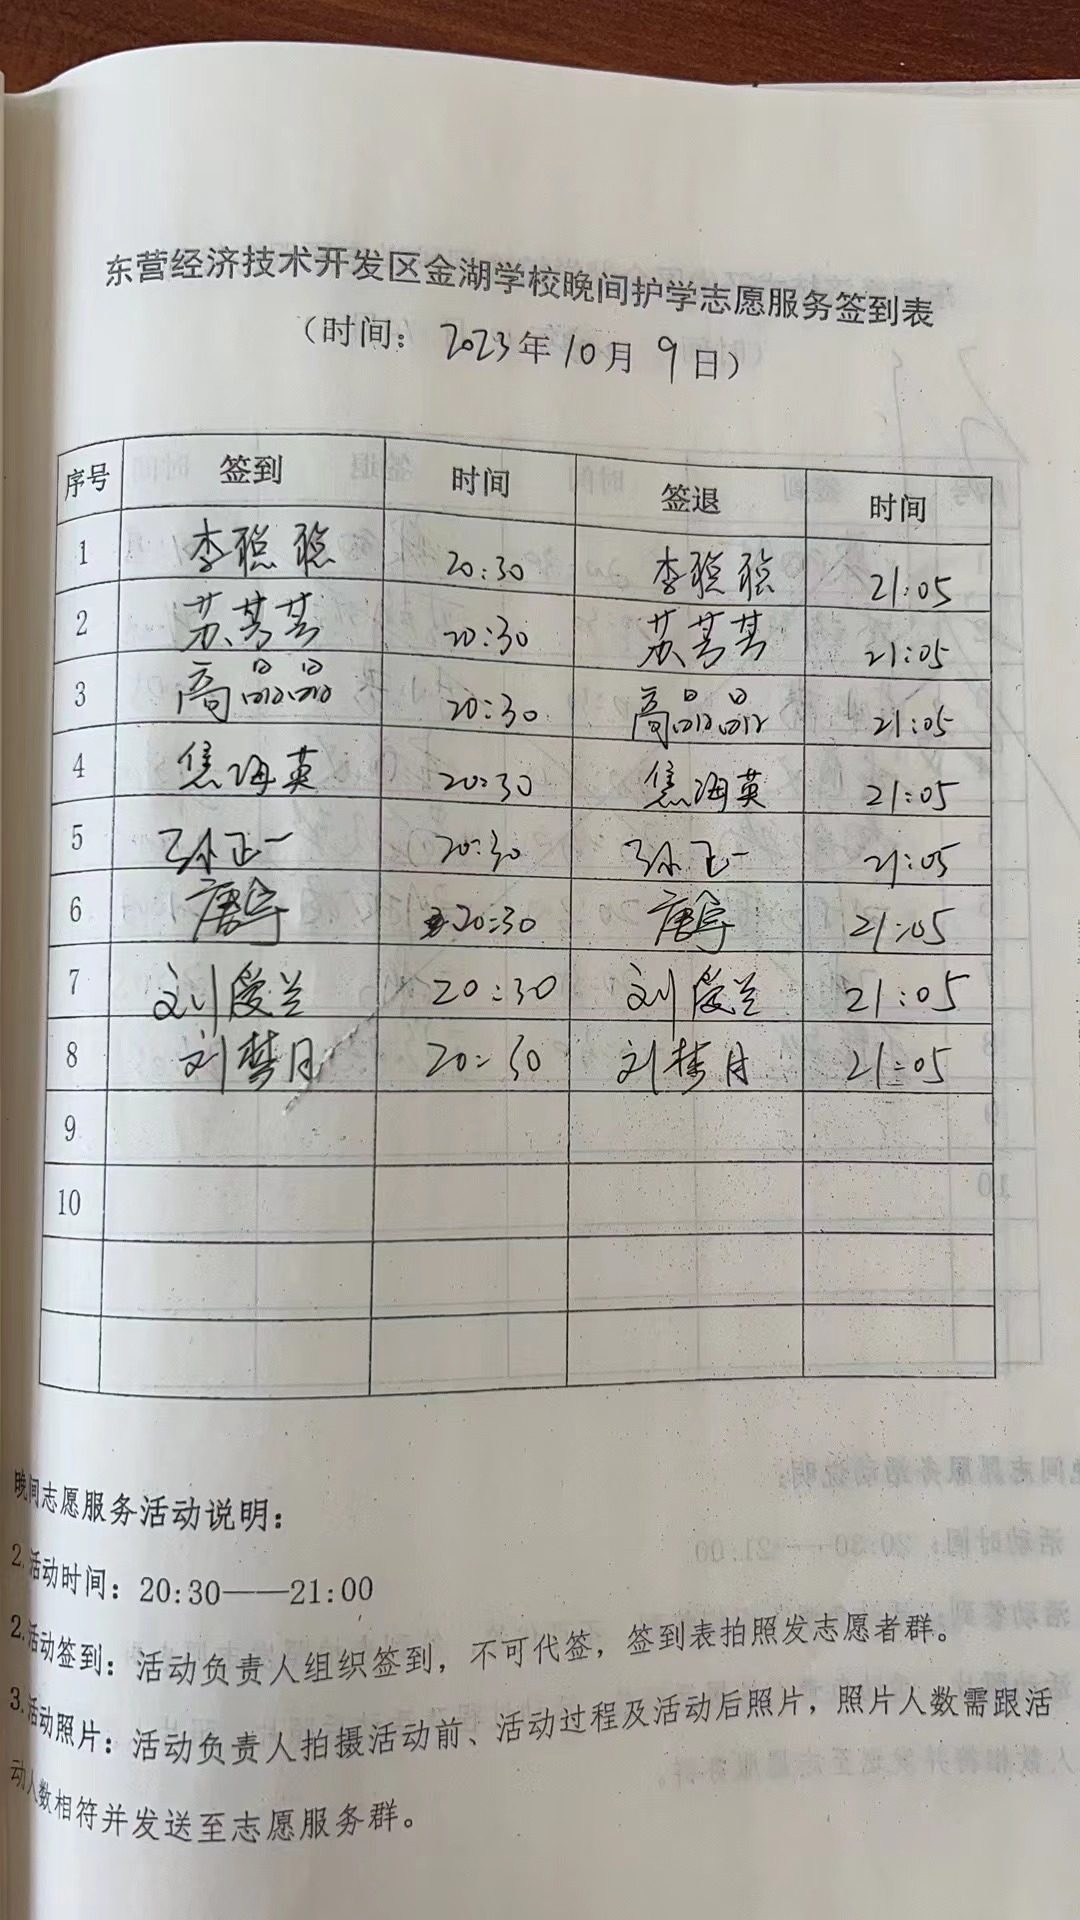 东营经济技术开发区金湖学校晚间护学志愿服务签到表
（时间：2023年10月9日）
序号 签到 时间 签退 时间
1 李聪聪 20:30 李聪聪 21:05
2 苏芳芳 20:30 苏芳芳 21:05
3 高晶晶 20:30 高晶晶 21:05
4 焦海英 20:30 焦海英 21:05
5 孙正一 20:30 孙正一 21:05
6 唐宇 20:30 唐宇 21:05
7 刘爱兰 20:30 刘爱兰 21:05
8 刘梦月 20:30 刘梦月 21:05
9
10
晚间志愿服务活动说明：
2.活动时间：20:30——21:00
2.活动签到：活动负责人组织签到，不可代签，签到表拍照发志愿者群。
3.活动照片：活动负责人拍摄活动前、活动过程及活动后照片，照片人数需跟活
动人数相符并发送至志愿服务群。